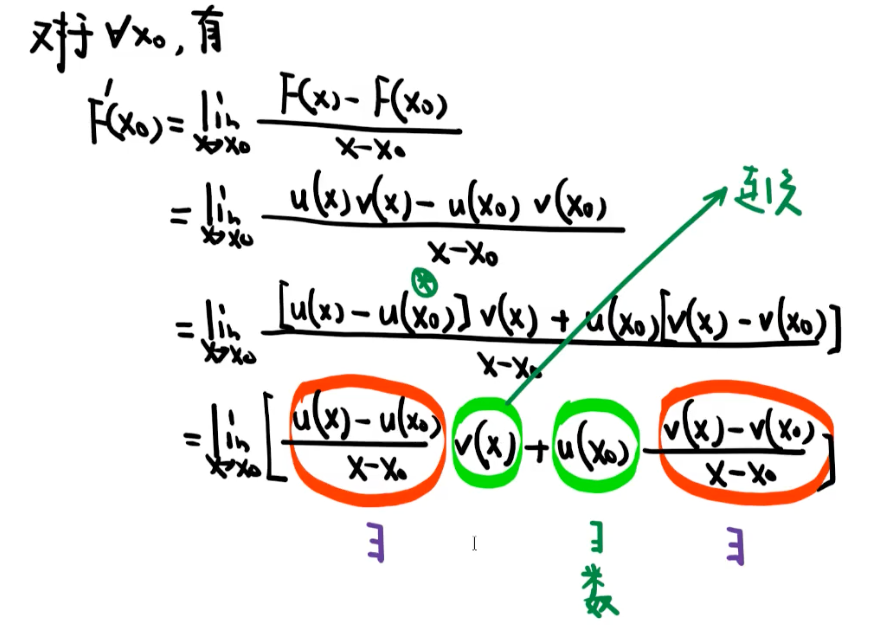 对于∀x₀,有
F'(x₀)=lim_{x→x₀} (F(x)-F(x₀))/(x-x₀)
=lim_{x→x₀} (u(x)v(x)-u(x₀)v(x₀))/(x-x₀)
连续
*
=lim_{x→x₀} ([u(x)-u(x₀)]v(x)+u(x₀)[v(x)-v(x₀)])/(x-x₀)
=lim_{x→x₀}[(u(x)-u(x₀))/(x-x₀) v(x)+u(x₀) (v(x)-v(x₀))/(x-x₀)]
∃ ∃ ∃